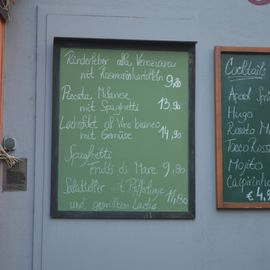 Rinderleber alla Veneziana
mit Rosmarinkartoffeln 9,80
Piccata Milanese
mit Spaghetti 13,90
Lachsfilet al Vino bianco
mit Gemüse 14,90
Spaghetti
Frutti di Mare 9,80
Salatteller mit
und gegrilltem Lachs 11,80
Cocktails
Aperol Spri
Hugo
Rosato M
Tocco Ross
Mojito
Caipirinha
€ 4,9